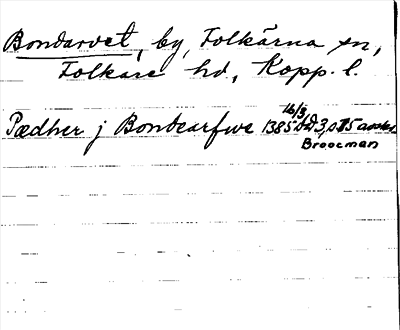 Bondarvet, by, Folkärna sn,
Folkare hd, Kopp. l.
16/3
Pædher j Bondearfwe 1385 DD 3, s 15 avskr.
Broocman